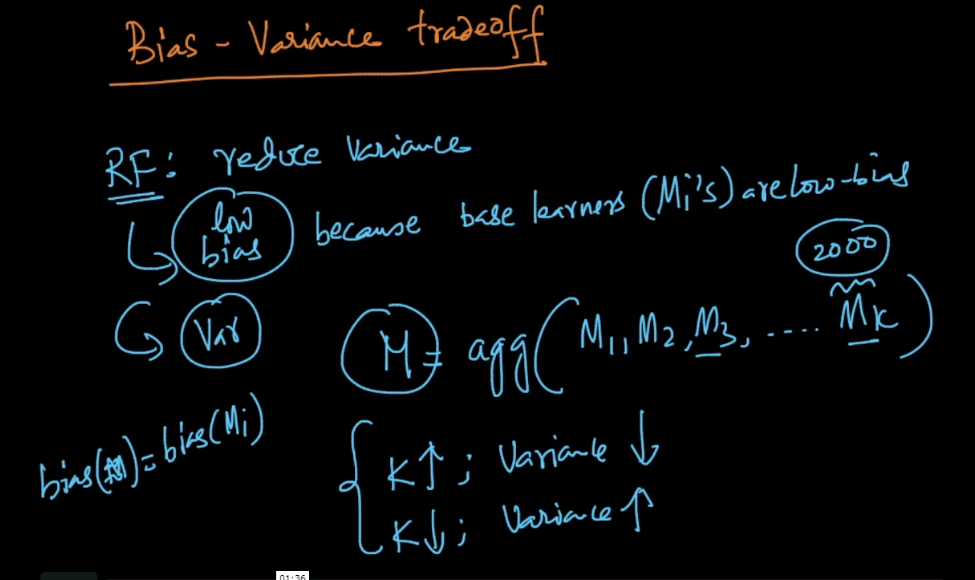 Bias - Variance tradeoff
RF: reduce variance
low bias because base learners (Mi's) are low-bias
2000
Var M = agg(M1, M2, M3, .... MK)
bias(M) = bias(Mi)
K↑; Variance ↓
K↓; Variance ↑
01:36